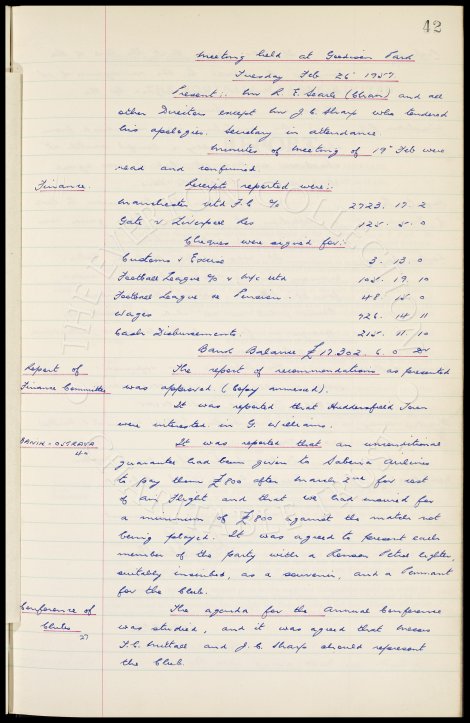 42
Meeting held at Goodison Park
Tuesday Feb 26 1957
Present:- Mr R. E. Searle (Chair) and all
other Directors except Mr J. C. Sharp who tendered
his apologies. Secretary in attendance.
Minutes of meeting of 19th Feb were
read and confirmed.
Finance. Receipts reported were:-
Manchester Utd F.C. 2723. 17. 2
Gate v Liverpool Res 125. 5. 0
Cheques were signed for:-
Customs & Excise 3. 13. 0
Football League % v M/c Utd 105. 19. 10
Football League re Pension. 48. 15. 0
Wages 926. 14. 11
Cash Disbursements. 215. 11. 10
Bank Balance £17.302. 6. 0
Report of The report of recommendations as presented
Finance Committee was approved. (Copy annexed).
It was reported that Huddersfield Town
were interested in G. Williams.
BANIK-OSTRAVA It was reported that an unconditional
guarantee had been given to Sabena Airlines
to pay them £800 after March 2nd for cost
of Air Flight and that we had insured for
a minimum of £800 against the match not
being played. It was agreed to present each
member of the party with a Ronson Petrol lighter,
suitably inscribed, as a souvenir, and a Pennant
for the Club.
Conference of The agenda for the Annual Conference
Clubs was studied, and it was agreed that Messrs
27
F. C. Micklesfield and J. C. Sharp should represent
the Club.